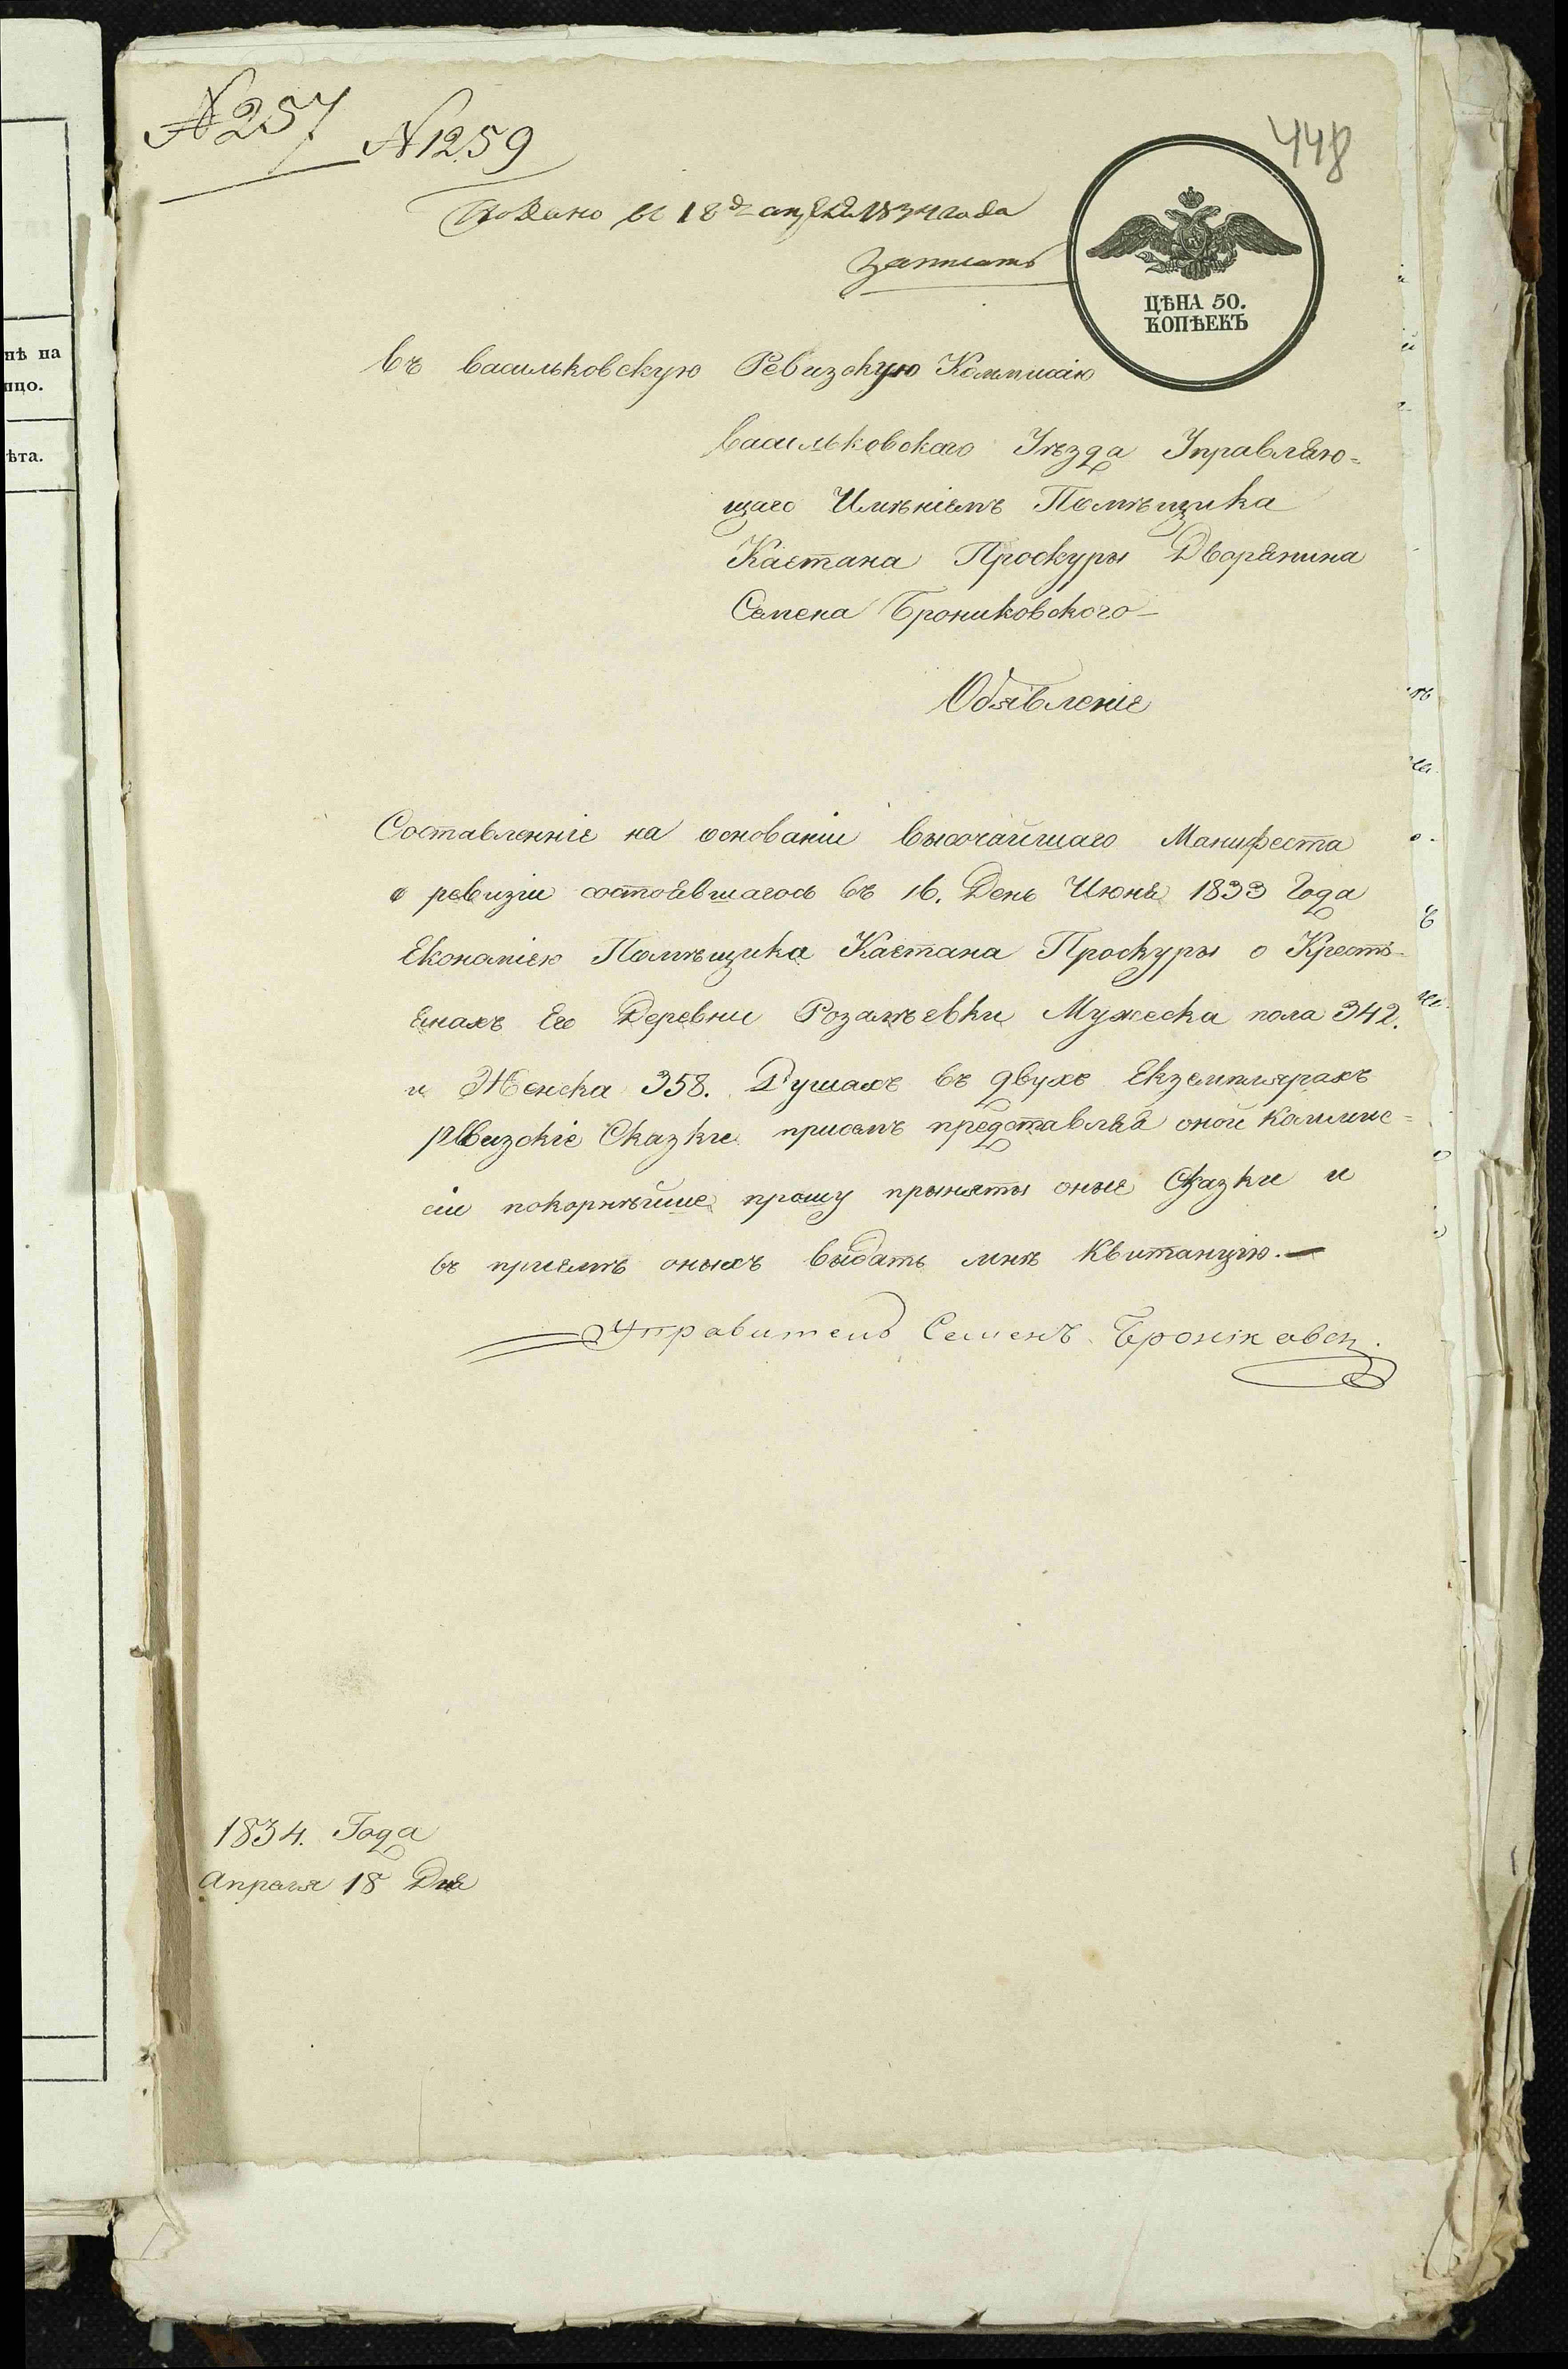 № 257
№ 1259
448
Подано 18 апреля 1834 года
Записать
ЦѢНА 50.
КОПѢЕКЪ
Въ Васильковскую Ревизскую Коммисію
Васильковского Уѣзда Управляю=
щаго Имѣніемъ Помѣщика
Каетана Проскуры Дворянина
Семена Брониковского-
Обявленіе
Составленніе на основаніи Высочайшаго Манифеста
о ревизіи состоявшагось въ 16. День Июня 1833 Года
Економіею Помѣщика Каетана Проскуры о Кресть-
янахъ Его Деревни Розалѣевки Мужеска пола 342.
и Женска 358. Душахъ въ двухъ Екземплярахъ
рѣвизскіе Сказки присемъ представляя оной Коммис=
сіи покорнѣйше прошу прыняты оные Сказки и
въ приемѣ оныхъ выдать мнѣ Квитанцію.-
Управитель Семенъ Бронiковсц.
1834. Года
Апреля 18 Дня
нѣ на
ицо.
ѣта.